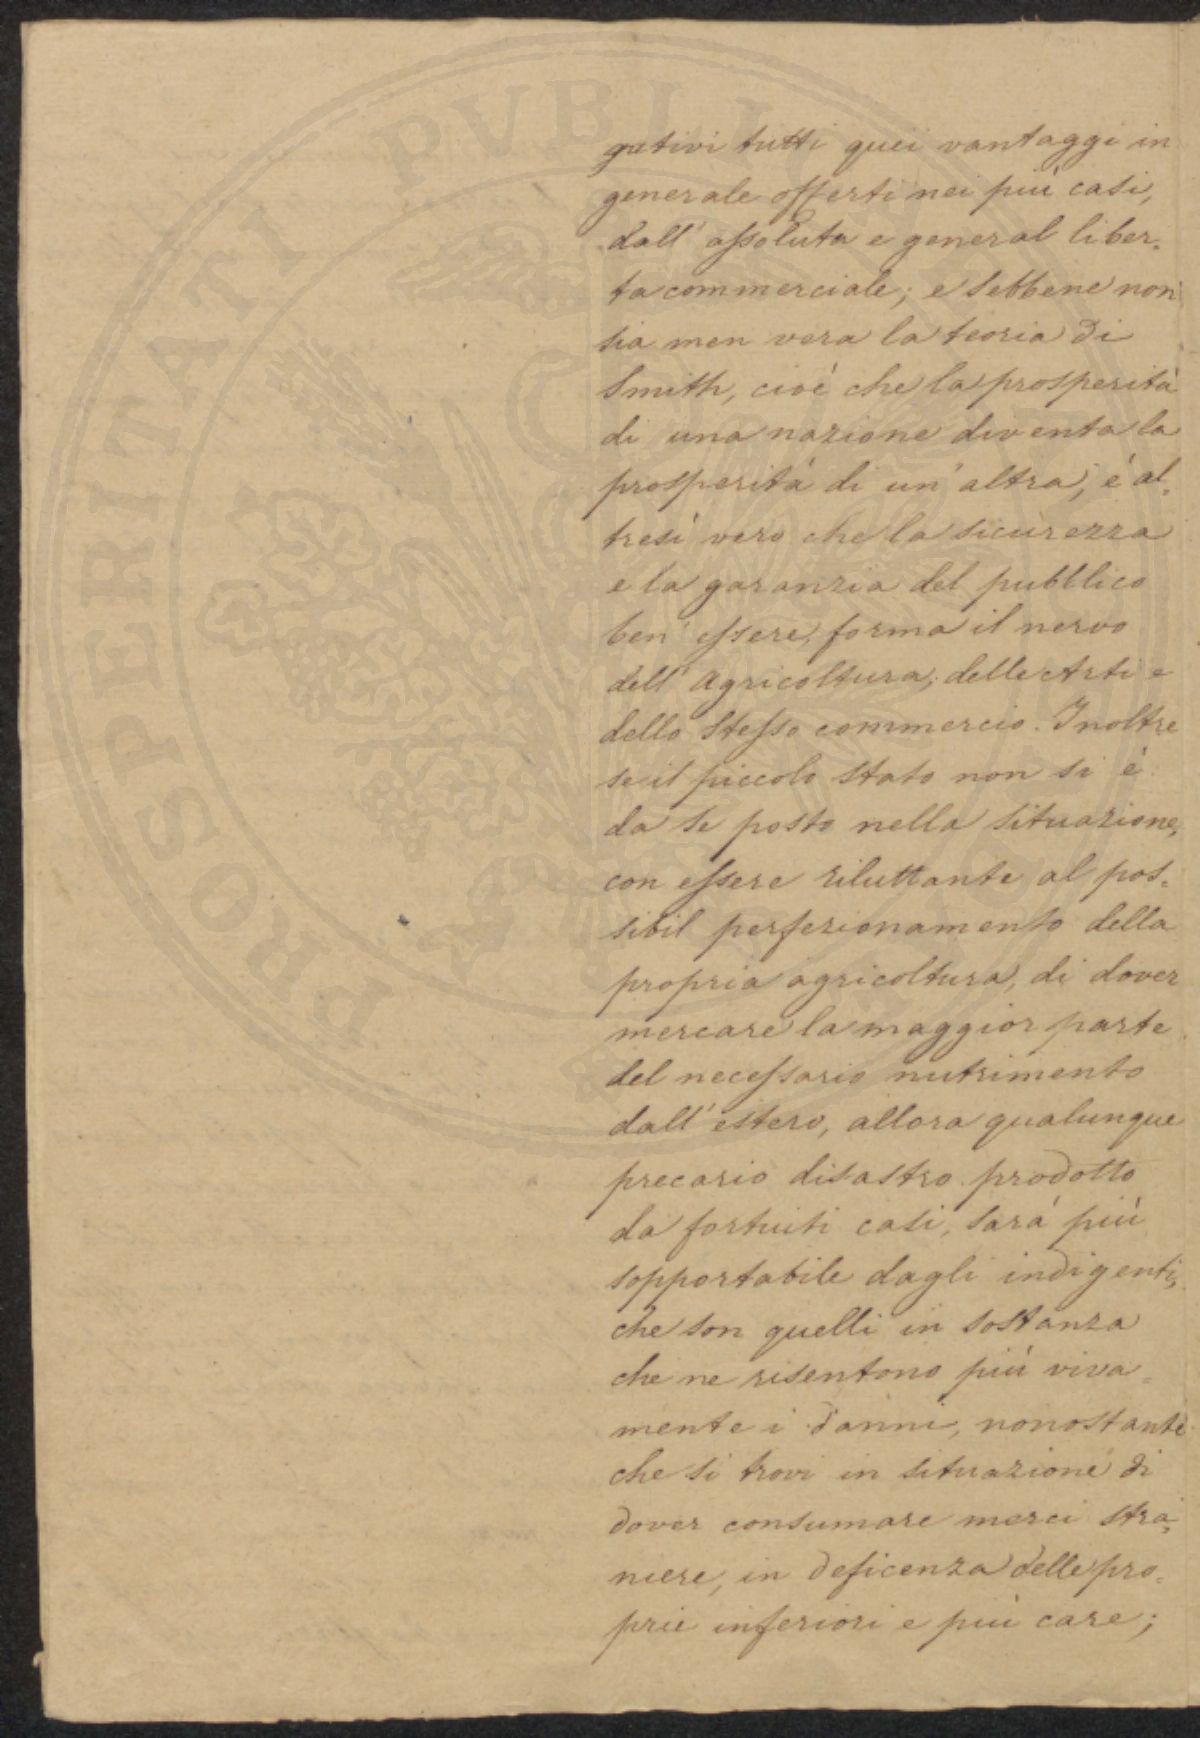 gativi tutti quei vantaggi in
generale offerti nei più casi,
dall' assoluta e general liber=
ta commerciale; e sebbene non
sia men vera la teoria di
Smith, cioè che la prosperità
di una nazione diventa la
prosperità di un' altra, è al=
tresì vero che la sicurezza
e la garanzia del pubblico
ben' essere, forma il nervo
dell' Agricoltura, delle Arti e
dello stesso commercio. Inoltre
se il piccolo stato non si è
da se posto nella situazione,
con essere riluttante al pos=
sibil perfezionamento della
propria agricoltura, di dover
mercare la maggior parte
del necessario nutrimento
dall' estero, allora qualunque
precario disastro prodotto
da fortuiti casi, sarà più
sopportabile dagli indigenti,
che son quelli in sostanza
che ne risentono più viva=
mente i danni, nonostante
che si trovi in situazione di
dover consumare merci stra=
niere, in deficenza delle pro=
prie inferiori e più care;
PROSPERITATI PVBLI